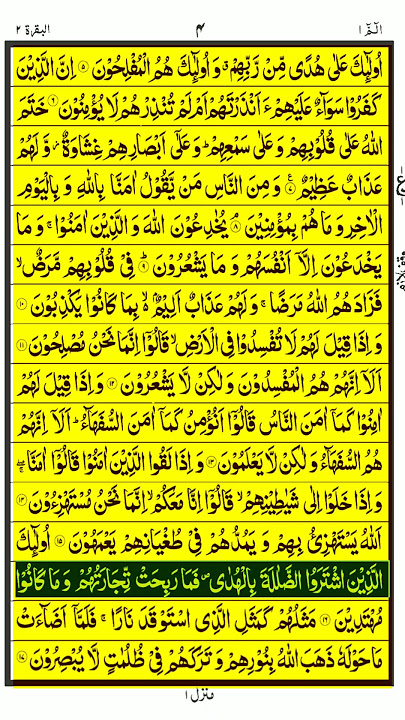 البقرة ٢ ٤ الٓمّٓ ١
اُولٰٓئِكَ عَلٰى هُدًى مِّنْ رَّبِّهِمْ ۙ وَ اُولٰٓئِكَ هُمُ الْمُفْلِحُوْنَ ۝٥ اِنَّ الَّذِيْنَ
كَفَرُوْا سَوَآءٌ عَلَيْهِمْ ءَاَنْذَرْتَهُمْ اَمْ لَمْ تُنْذِرْهُمْ لَا يُؤْمِنُوْنَ ۝٦ خَتَمَ
اللّٰهُ عَلٰى قُلُوْبِهِمْ وَ عَلٰى سَمْعِهِمْ ؕ وَ عَلٰٓى اَبْصَارِهِمْ غِشَاوَةٌ ؗ وَّ لَهُمْ
عَذَابٌ عَظِيْمٌ ۝٧ وَ مِنَ النَّاسِ مَنْ يَّقُوْلُ اٰمَنَّا بِاللّٰهِ وَ بِالْيَوْمِ
الْاٰخِرِ وَ مَا هُمْ بِمُؤْمِنِيْنَ ۝٨ يُخٰدِعُوْنَ اللّٰهَ وَ الَّذِيْنَ اٰمَنُوْا ۚ وَ مَا
يَخْدَعُوْنَ اِلَّاۤ اَنْفُسَهُمْ وَ مَا يَشْعُرُوْنَ ۝٩ فِيْ قُلُوْبِهِمْ مَّرَضٌ ۙ
فَزَادَهُمُ اللّٰهُ مَرَضًا ۚ وَ لَهُمْ عَذَابٌ اَلِيْمٌۢ ۙ۬ بِمَا كَانُوْا يَكْذِبُوْنَ ۝١٠
وَ اِذَا قِيْلَ لَهُمْ لَا تُفْسِدُوْا فِي الْاَرْضِ ۙ قَالُوْۤا اِنَّمَا نَحْنُ مُصْلِحُوْنَ ۝١١
اَلَاۤ اِنَّهُمْ هُمُ الْمُفْسِدُوْنَ وَ لٰكِنْ لَّا يَشْعُرُوْنَ ۝١٢ وَ اِذَا قِيْلَ لَهُمْ
اٰمِنُوْا كَمَاۤ اٰمَنَ النَّاسُ قَالُوْۤا اَنُؤْمِنُ كَمَاۤ اٰمَنَ السُّفَهَآءُ ؕ اَلَاۤ اِنَّهُمْ
هُمُ السُّفَهَآءُ وَ لٰكِنْ لَّا يَعْلَمُوْنَ ۝١٣ وَ اِذَا لَقُوا الَّذِيْنَ اٰمَنُوْا قَالُوْۤا اٰمَنَّا ۖۚ
وَ اِذَا خَلَوْا اِلٰى شَيٰطِيْنِهِمْ ۙ قَالُوْۤا اِنَّا مَعَكُمْ ۙ اِنَّمَا نَحْنُ مُسْتَهْزِءُوْنَ ۝١٤
اَللّٰهُ يَسْتَهْزِئُ بِهِمْ وَ يَمُدُّهُمْ فِيْ طُغْيَانِهِمْ يَعْمَهُوْنَ ۝١٥ اُولٰٓئِكَ
الَّذِيْنَ اشْتَرَوُا الضَّلٰلَةَ بِالْهُدٰى ۪ فَمَا رَبِحَتْ تِّجَارَتُهُمْ وَ مَا كَانُوْا
مُهْتَدِيْنَ ۝١٦ مَثَلُهُمْ كَمَثَلِ الَّذِي اسْتَوْقَدَ نَارًا ۚ فَلَمَّاۤ اَضَآءَتْ
مَا حَوْلَهٗ ذَهَبَ اللّٰهُ بِنُوْرِهِمْ وَ تَرَكَهُمْ فِيْ ظُلُمٰتٍ لَّا يُبْصِرُوْنَ ۝١٧
منزل ١